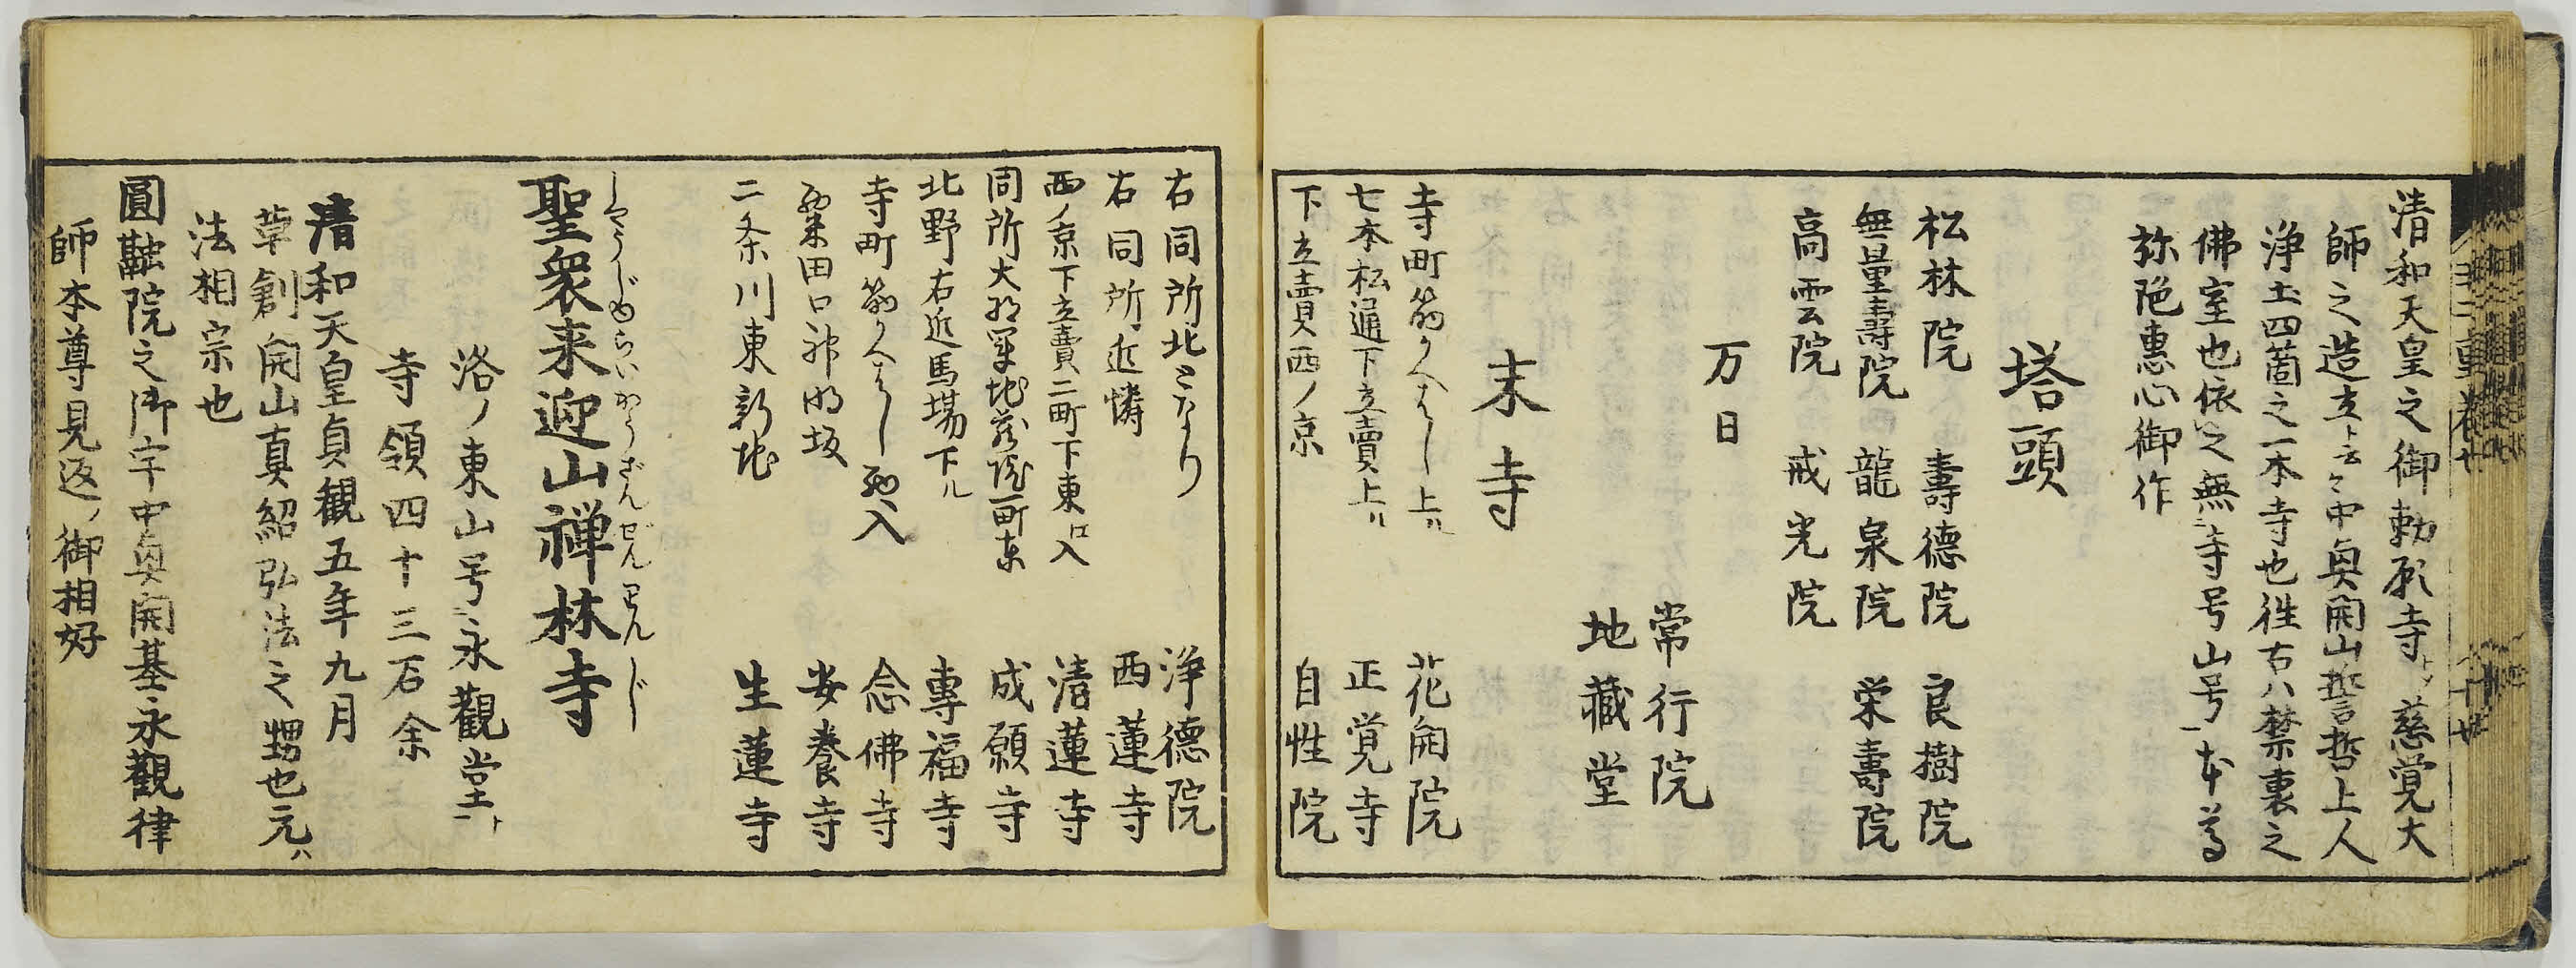 清和天皇之御勅願寺ト〆慈覚大
師之造立ト云々中興開山誓哲上人
浄土四箇之一本寺也徃古ハ禁裏之
佛室也依之無寺号山号一本尊
弥陀恵心御作
塔頭
松林院 壽徳院 良樹院
無量壽院 龍泉院 栄壽院
高雲院 戒光院
万日
常行院
地蔵堂
末寺
寺町筋くらま口上ル 花開院
七本松通下立賣上ル 正覚寺
下立賣西ノ京 自性院
右同所北となり 浄徳院
右同所近憐 西蓮寺
西ノ京下立賣二町下東ヘ入 清蓮寺
同所大将軍地蔵院一町東 成願寺
北野右近馬場下ル 專福寺
寺町筋くらま口西入 念佛寺
粟田口神明坂 安養寺
二条川東新地 生蓮寺
聖衆来迎山禅林寺
しやうじゆらいかうざんぜんりんじ
洛ノ東山号ニ永觀堂ト
寺領四十三石余
清和天皇貞觀五年九月
草創開山真紹弘法之甥也元ハ
法相宗也
圓融院之御宇中興開基永觀律
師本尊見返ノ御相好